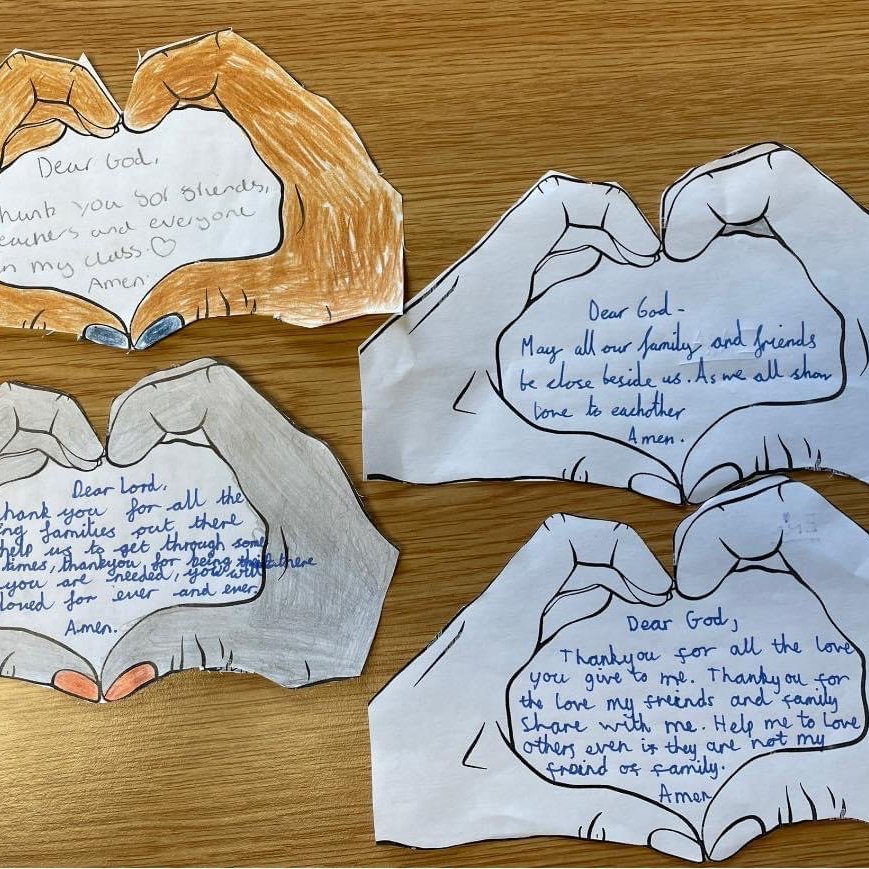 Dear God,
thank you for friends,
teachers and everyone
in my class ♡
Amen.
Dear God -
May all our family and friends
be close beside us. As we all show
love to eachother
Amen.
Dear Lord,
thank you for all the
families out there
help us to get through some
times, thankyou for being there
you are needed, you will
loved for ever and ever
Amen.
Dear God,
Thankyou for all the love
you give to me. Thankyou for
the love my friends and family
share with me. Help me to love
others even if they are not my
froind or family.
Amen